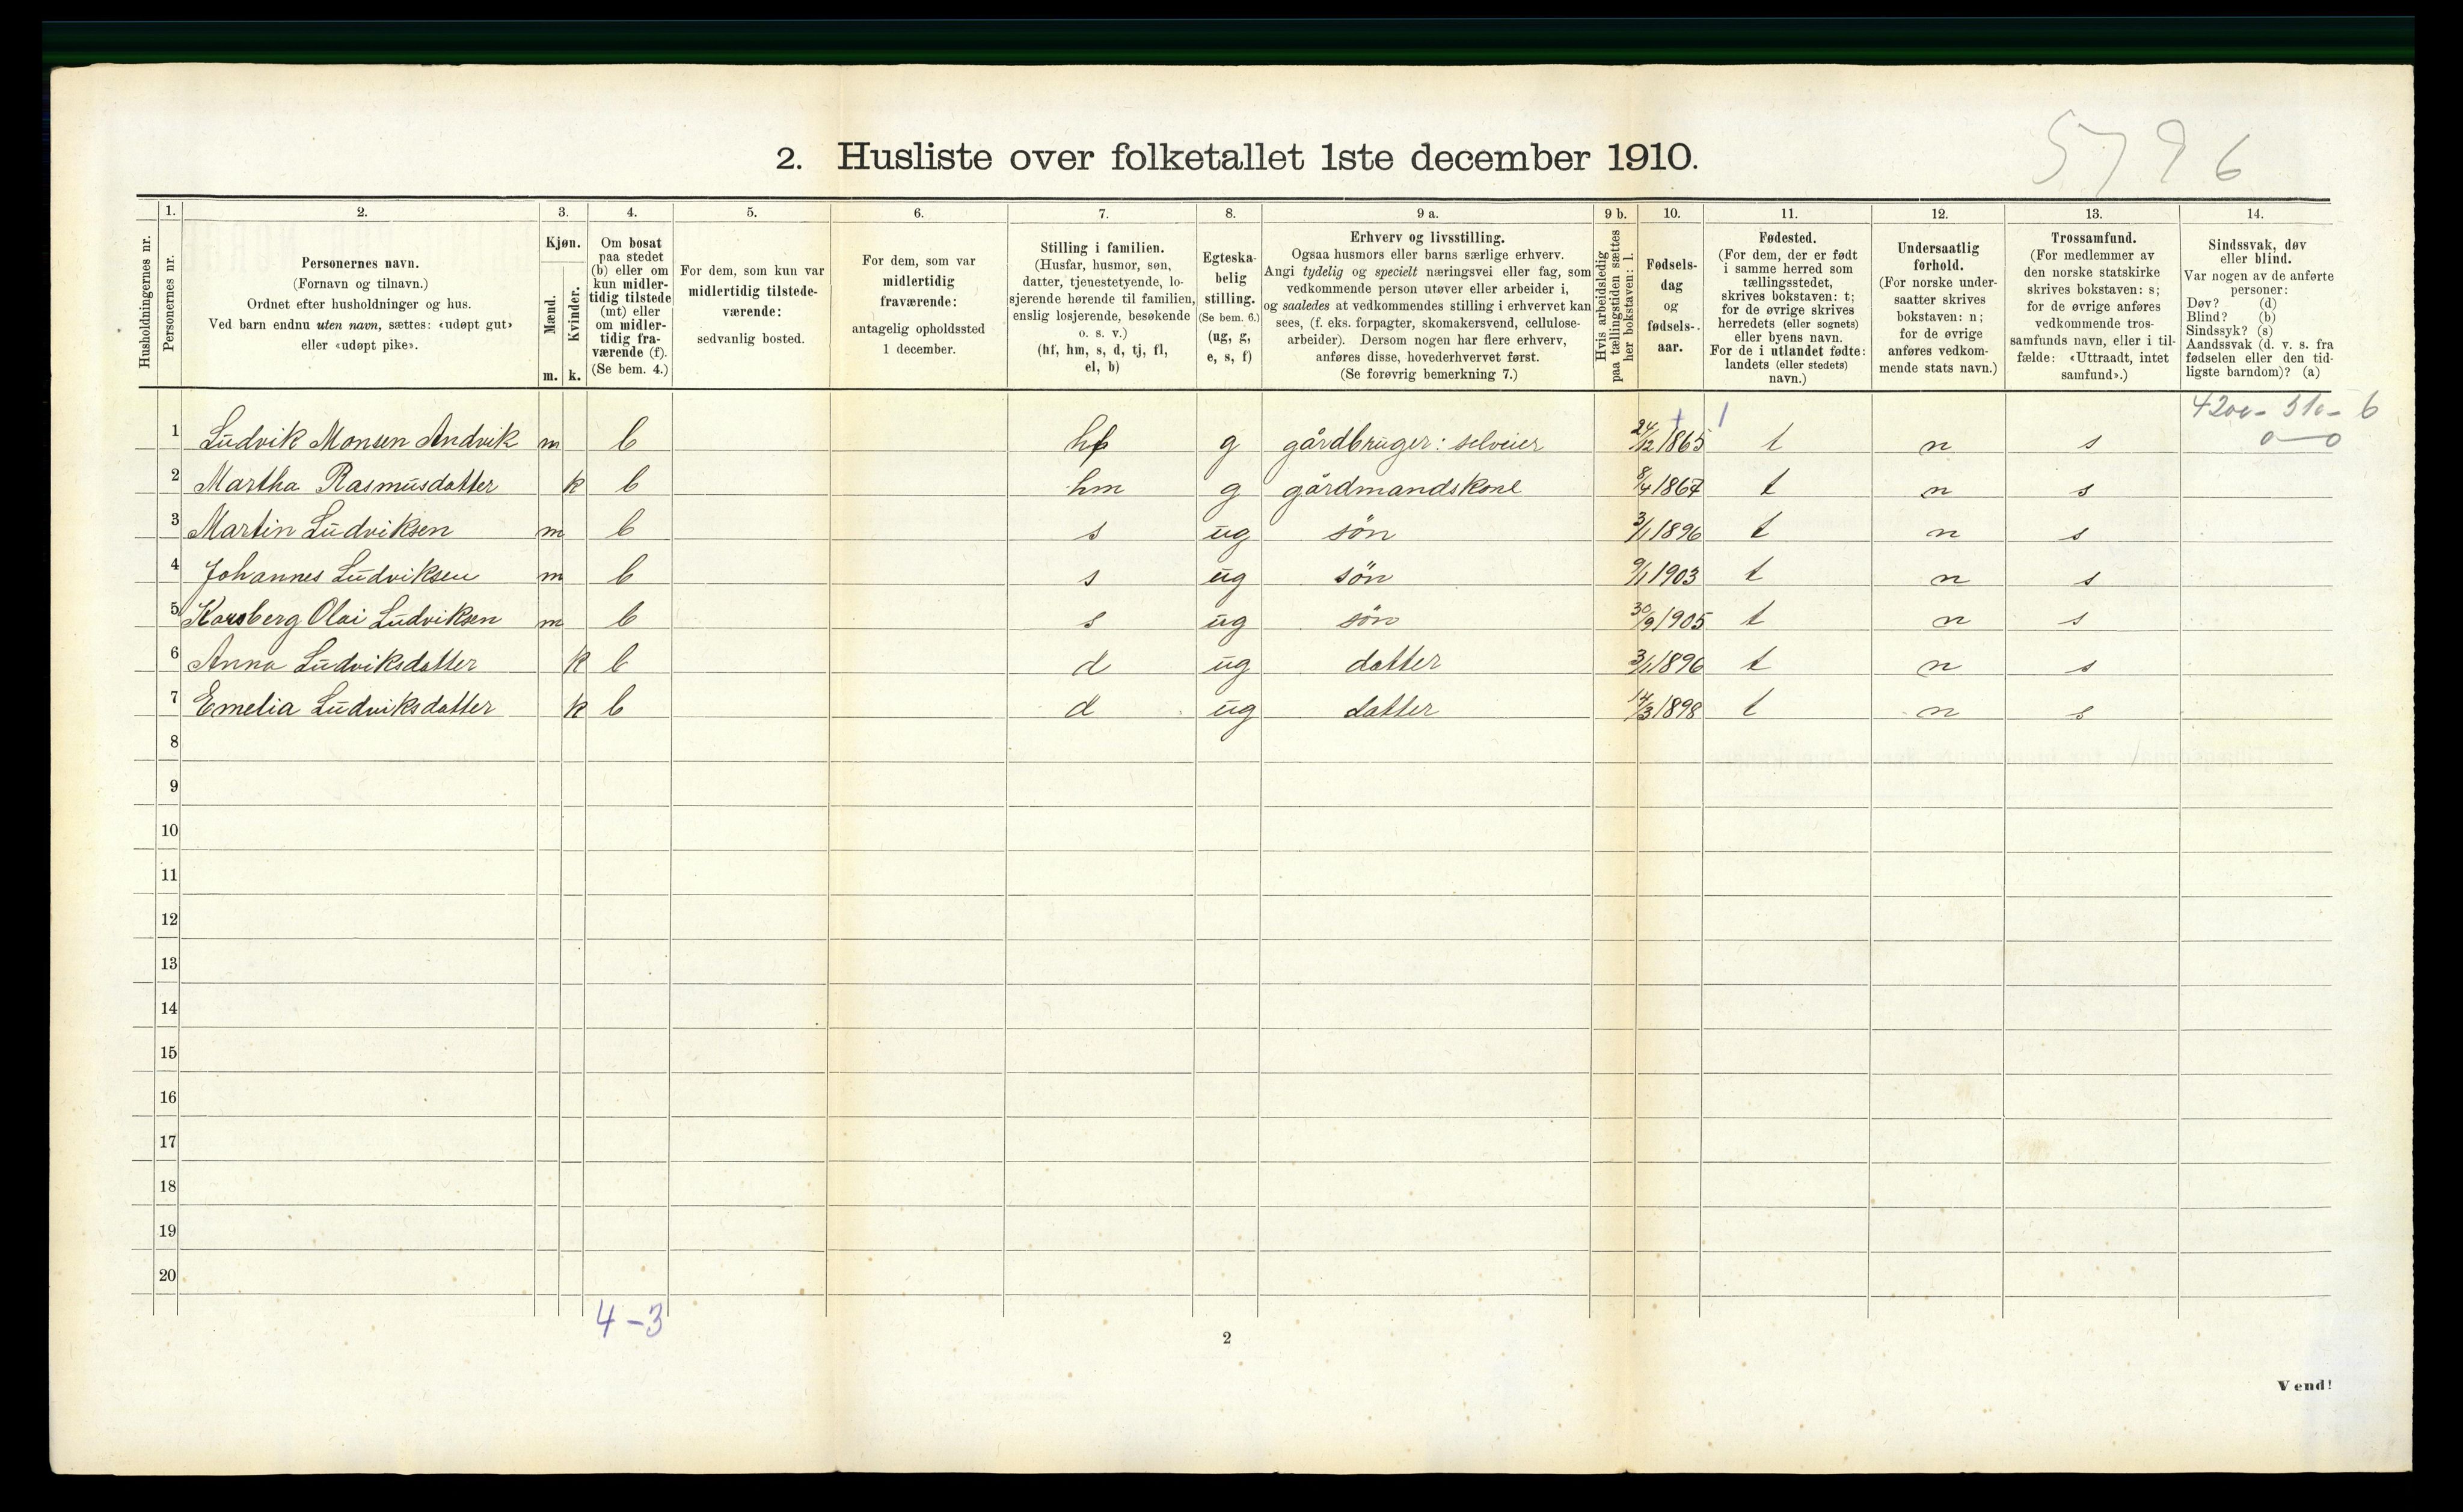 5796
2. Husliste over folketallet 1ste december 1910.
Husholdningernes nr.
1.
Personernes nr.
2.
Personernes navn.
(Fornavn og tilnavn.)
Ordnet efter husholdninger og hus.
Ved barn endnu uten navn, sættes: «udøpt gut»
eller «udøpt pike».
3.
Kjøn.
Mænd.
Kvinder.
m. k.
4.
Om bosat
paa stedet
(b) eller om
kun midler-
tidig tilstede
(mt) eller
om midler-
tidig fra-
værende (f).
(Se bem. 4.)
5.
For dem, som kun var
midlertidig tilstede-
værende:
sedvanlig bosted.
6.
For dem, som var
midlertidig
fraværende:
antagelig opholdssted
1 december.
7.
Stilling i familien.
(Husfar, husmor, søn,
datter, tjenestetyende, lo-
sjerende hørende til familien,
enslig losjerende, besøkende
o. s. v.)
(hf, hm, s, d, tj, fl,
el, b)
8.
Egteska-
belig
stilling.
(Se bem. 6.)
(ug, g,
e, s, f)
9 a.
Erhverv og livsstilling.
Ogsaa husmors eller barns særlige erhverv.
Angi tydelig og specielt næringsvei eller fag, som
vedkommende person utøver eller arbeider i,
og saaledes at vedkommendes stilling i erhvervet kan
sees, (f. eks. forpagter, skomakersvend, cellulose-
arbeider). Dersom nogen har flere erhverv,
anføres disse, hovederhvervet først.
(Se forøvrig bemerkning 7.)
9 b.
Hvis arbeidsledig
paa tællingstiden sættes
her bokstaven: l.
10.
Fødsels-
dag
og
fødsels-
aar.
11.
Fødested.
(For dem, der er født
i samme herred som
tællingsstedet,
skrives bokstaven: t;
for de øvrige skrives
herredets (eller sognets)
eller byens navn.
For de i utlandet fødte:
landets (eller stedets)
navn.)
12.
Undersaatlig
forhold.
(For norske under-
saatter skrives
bokstaven: n;
for de øvrige
anføres vedkom-
mende stats navn.)
13.
Trossamfund.
(For medlemmer av
den norske statskirke
skrives bokstaven: s;
for de øvrige anføres
vedkommende tros-
samfunds navn, eller i til-
fælde: «Uttraadt, intet
samfund».)
14.
Sindssvak, døv
eller blind.
Var nogen av de anførte
personer:
Døv? (d)
Blind? (b)
Sindssyk? (s)
Aandssvak (d. v. s. fra
fødselen eller den tid-
ligste barndom)? (a)
1 Ludvik Monsen Andvik m b hf g gårdbruger: selveier 24/12 1865 t n s
2 Martha Rasmusdatter k b hm g gårdmandskone 8/4 1867 t n s
3 Martin Ludviksen m b s ug sön 3/1 1896 t n s
4 Johannes Ludviksen m b s ug sön 9/1 1903 t n s
5 Olai Ludviksen m b s ug sön 30/9 1905 t n s
6 Anna Ludviksdatter k b d ug datter 3/1 1896 t n s
7 Emelia Ludviksdatter k b d ug datter 14/3 1898 t n s
8
9
10
11
12
13
14
15
16
17
18
19
20
4-3
2
Vend!